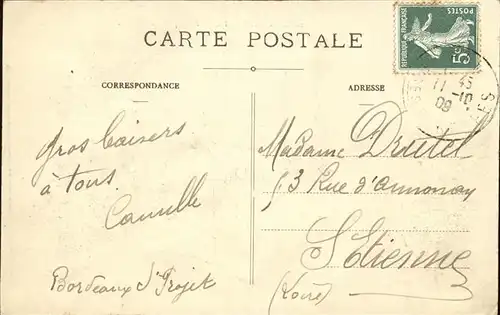 CARTE POSTALE
CORRESPONDANCE
ADRESSE
REPUBLIQUE FRANÇAISE
POSTES
5c
11 45
11 -10
09
Gros baisers
à tous.
Camille
Bordeaux d'
Madame Drutel
53 Rue d'Annonay
St Etienne
(Loire)